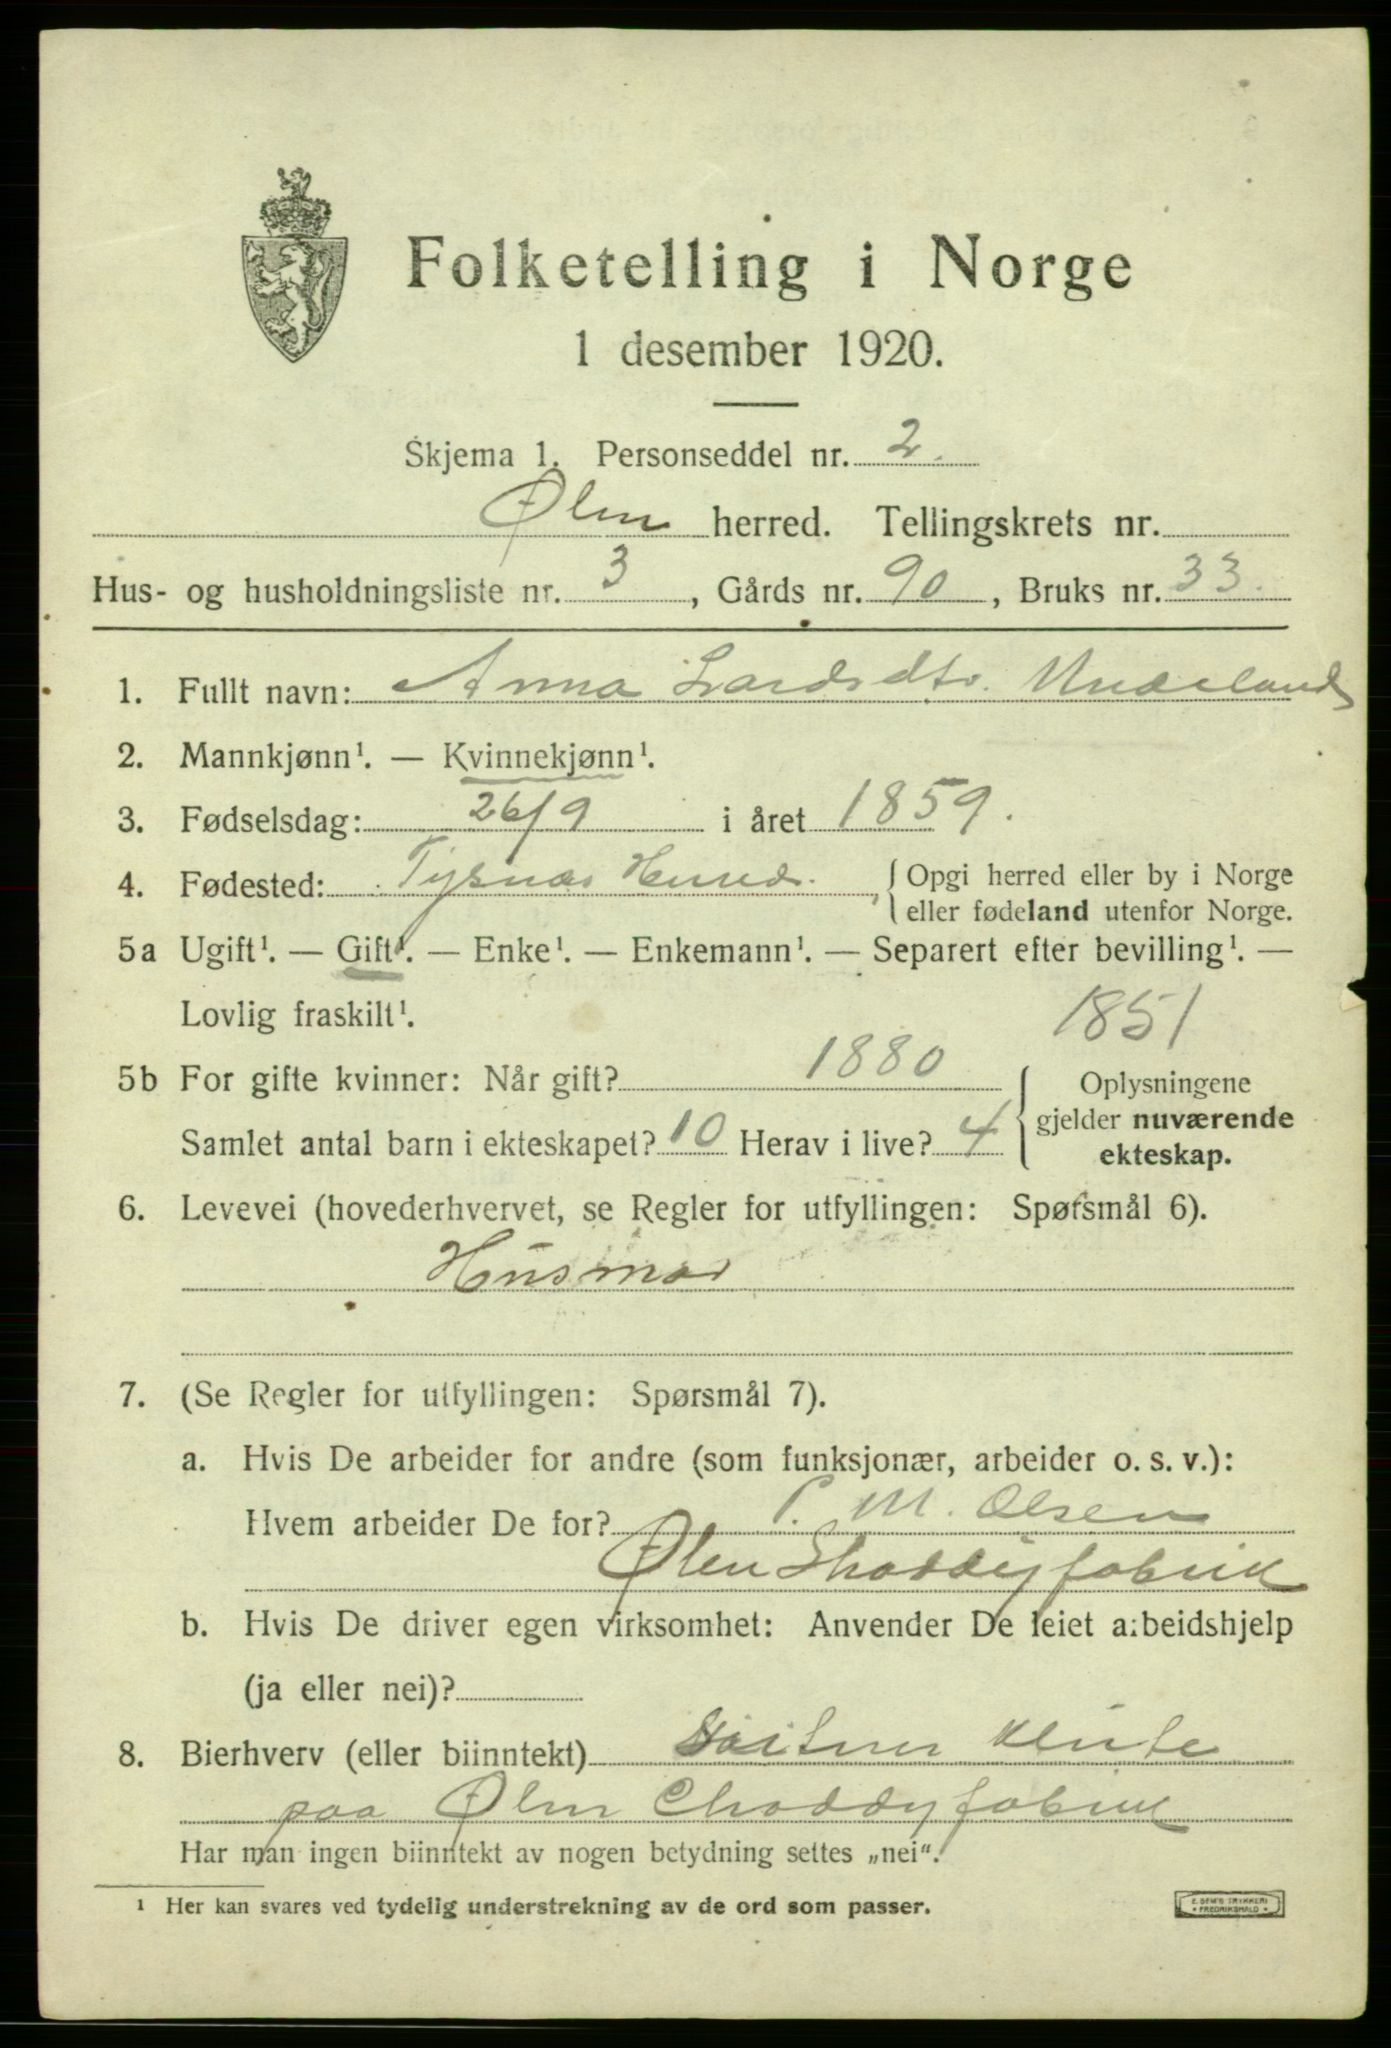 Folketelling i Norge
1 desember 1920.
Skjema 1. Personseddel nr. 2.
Ølen herred. Tellingskrets nr.
Hus- og husholdningsliste nr. 3, Gårds nr. 90, Bruks nr. 33.
1. Fullt navn: Anna Larsdtr.
2. Mannkjønn¹. — Kvinnekjønn¹.
3. Fødselsdag: 26/9 i året 1859.
4. Fødested: Tysnes Herred. { Opgi herred eller by i Norge
eller fødeland utenfor Norge.
5a Ugift¹. — Gift¹. — Enke¹. — Enkemann¹. — Separert efter bevilling¹. —
Lovlig fraskilt¹.
1851
5b For gifte kvinner: Når gift? 1880
Samlet antal barn i ekteskapet? 10 Herav i live? 4
Oplysningene
gjelder nuværende
ekteskap.
6. Levevei (hovederhvervet, se Regler for utfyllingen: Spørsmål 6).
Husmor
7. (Se Regler for utfyllingen: Spørsmål 7).
a. Hvis De arbeider for andre (som funksjonær, arbeider o. s. v.):
Hvem arbeider De for? P. M. Olsen
Ølen Shoddyfabrik
b. Hvis De driver egen virksomhet: Anvender De leiet arbeidshjelp
(ja eller nei)?
8. Bierhverv (eller biinntekt) klute
paa Ølen Choddyfabrik
Har man ingen biinntekt av nogen betydning settes „nei“.
¹ Her kan svares ved tydelig understrekning av de ord som passer.
E. SEM'S TRYKKERI
• FREDRIKSHALD •